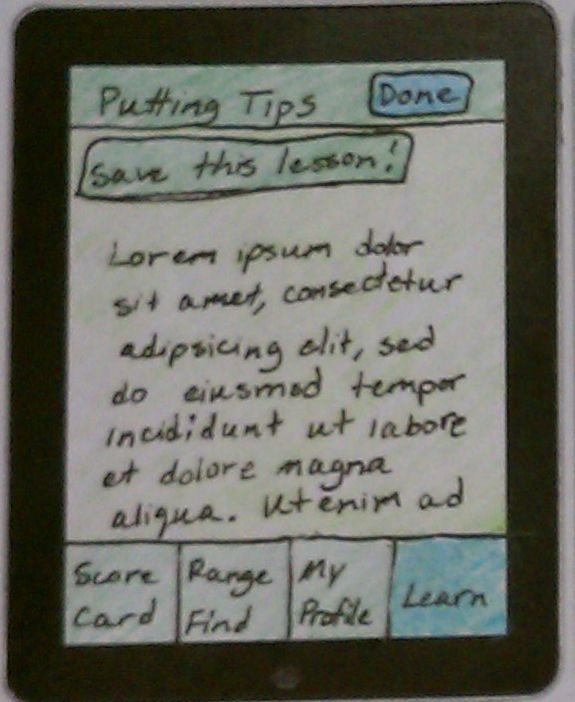 Putting Tips
Done
Save this lesson!
Lorem ipsum dolor
sit amet, consectetur
adipsicing elit, sed
do eiusmod tempor
incididunt ut labore
et dolore magna
aliqua. Ut enim ad
Score
Card
Range
Find
My
Profile
Learn